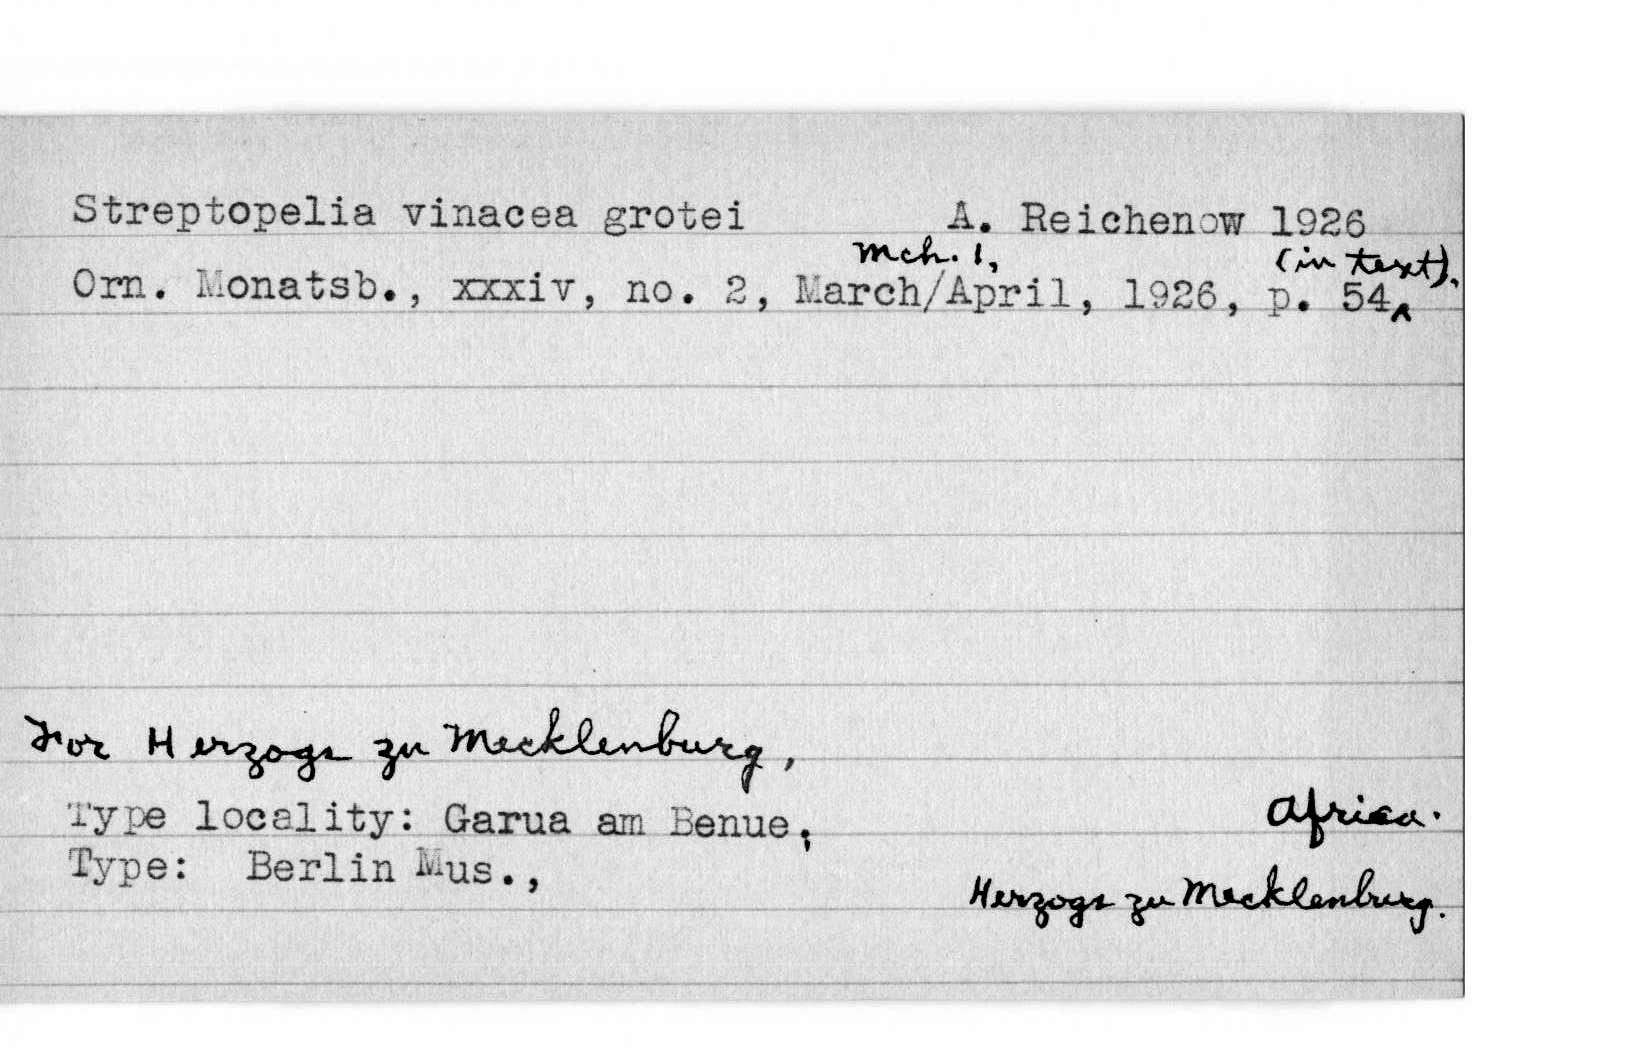 Streptopelia vinacea grotei A. Reichenow 1926
mch. 1, (in text).
Orn. Monatsb., xxxiv, no. 2, March/April, 1926, p. 54^
For Herzogs zu Mecklenburg,
Type locality: Garua am Benue; Africa.
Type: Berlin Mus.,
Herzogs zu Mecklenburg.